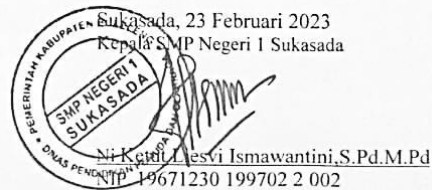 Sukasada, 23 Februari 2023
Kepala SMP Negeri 1 Sukasada
PEMERINTAH KABUPATEN
SMP NEGERI 1
SUKASADA
DINAS PENDIDIKAN
Ni Ketut Ismawantini,S.Pd.M.Pd
NIP. 19671230 199702 2 002